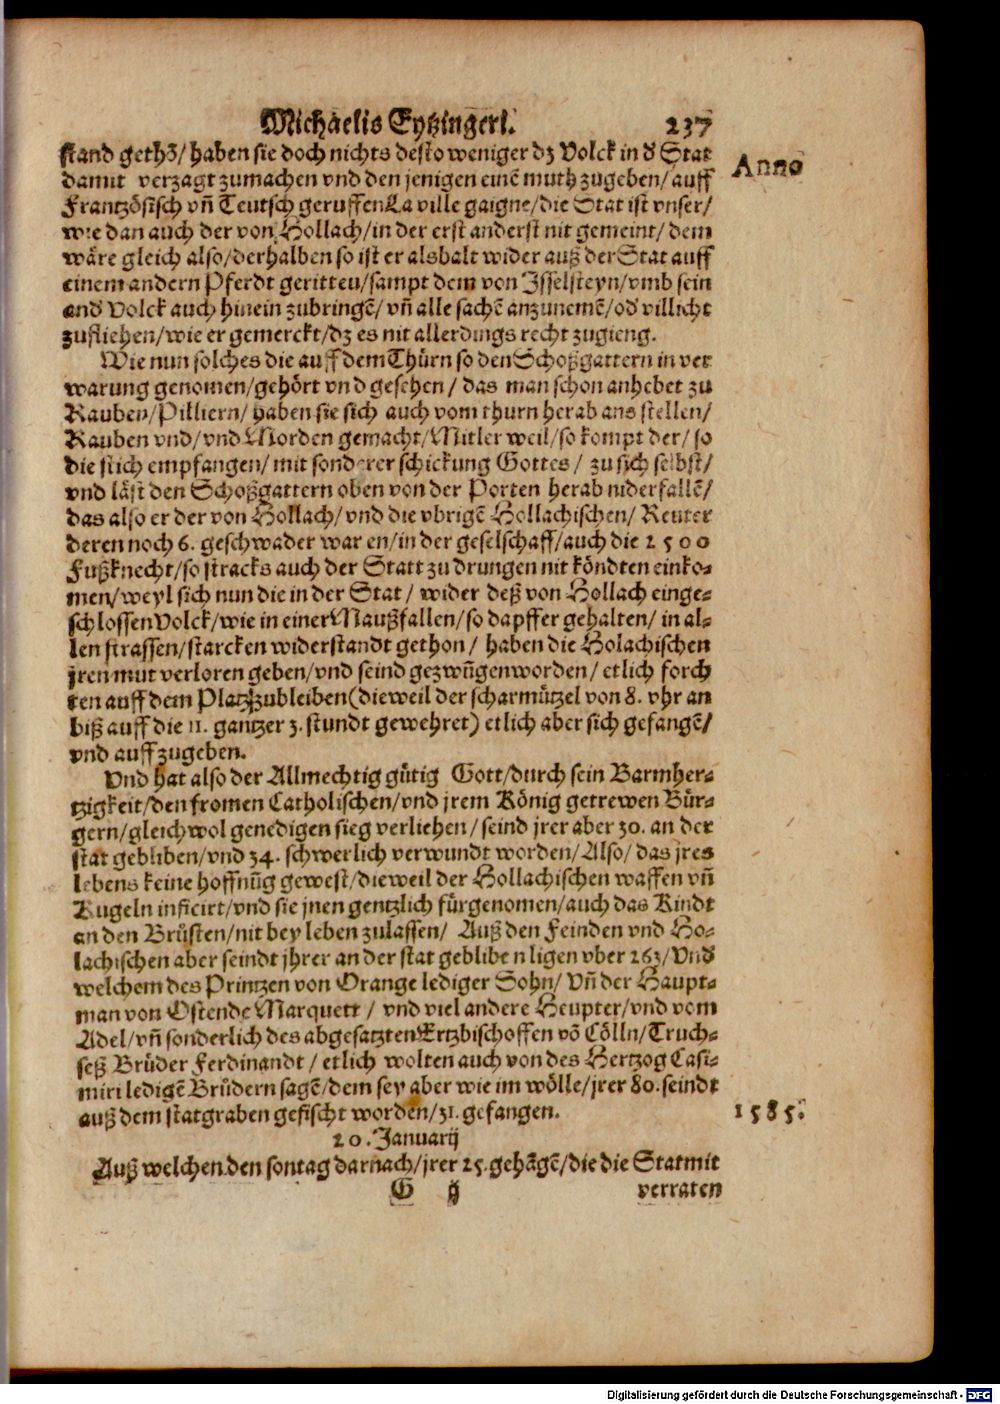 Michaelis Eytzingeri. 237
stand gethō/ haben sie doch nichts desto weniger dz Volck in d̕ Stat
Anno
damit verzagt zumachen vnd den jenigen einē muth zugeben/ auff
Frantzösisch vñ Teutsch geruffen La ville gaigne/ die Stat ist vnser/
wie dan auch der von Hollach/ in der erst anderst nit gemeint/ dem
wäre gleich also/ derhalben so ist er alsbalt wider auß der Stat auff
einem andern Pferdt geritten/ sampt dem von Isselsteyn/ vmb sein
and̕ Volck auch hinein zubringē/ vñ alle sachē anzunemē/ od̕ villicht
zufliehen/ wie er gemerckt/ dz es nit allerdings recht zugieng.
Wie nun solches die auff dem Thürn so den Schoßgattern in ver
warung genomen/ gehört vnd gesehen/ das man schon anhebet zu
Rauben/ Pilliern/ haben sie sich auch vom thurn herab ans stellen/
Rauben vnd/ vnd Morden gemacht/ Mitler weil/ so kompt der/ so
die stich empfangen/ mit sonderer schickung Gottes/ zu sich selbst/
vnd läst den Schoßgattern oben von der Porten herab niderfallē/
das also er der von Hollach/ vnd die vbrigē Hollachischen/ Reuter
deren noch 6. geschwader waren/ in der geselschaff/ auch die 2500
Fußknecht/ so stracks auch der Statt zu drungen nit köndten einko-
men/ weyl sich nun die in der Stat/ wider deß von Hollach einge-
schlossen Volck/ wie in einer Maußfallen/ so dapffer gehalten/ in al-
len strassen/ starcken widerstandt gethon/ haben die Holachischen
jren mut verloren geben/ vnd seind gezwūgen worden/ etlich forch
ten auff dem Platz zubleiben (dieweil der scharmützel von 8. vhr an
biß auff die 11. gantzer 3. stundt gewehret) etlich aber sich gefangē/
vnd auffzugeben.
Vnd hat also der Allmechtig gütig Gott/ durch sein Barmher-
tzigkeit/ den fromen Catholischen/ vnd jrem König getrewen Bür-
gern/ gleichwol genedigen sieg verliehen/ seind jrer aber 30. an der
stat gebliben/ vnd 34. schwerlich verwundt worden/ Also/ das jres
lebens keine hoffnūg gewest/ dieweil der Hollachischen waffen vñ
Kugeln inficirt/ vnd sie jnen gentzlich fürgenomen/ auch das Kindt
an den Brüsten/ nit bey leben zulassen/ Auß den Feinden vnd Ho-
lachischen aber seindt jhrer an der stat gebliben ligen vber 263/ Vnd̕
welchem des Printzen von Orange lediger Sohn/ Vñ der Haupt-
man von Ostende Marquett/ vnd viel andere Heupter/ vnd vom
Adel/ vñ sonderlich des abgesatzten Ertzbischoffen vō Cölln/ Truch-
seß Brüder Ferdinandt/ etlich wolten auch von des Hertzog Casi-
miri ledigē Brüdern sagē/ dem sey aber wie im wölle/ jrer 80. seindt
auß dem statgraben gefischt worden/ 31. gefangen.
1585.
20. Januarij
Auß welchen den sontag darnach/ jrer 25. gehāgē/ die die Stat mit
G ij verraten
Digitalisierung gefördert durch die Deutsche Forschungsgemeinschaft - DFG